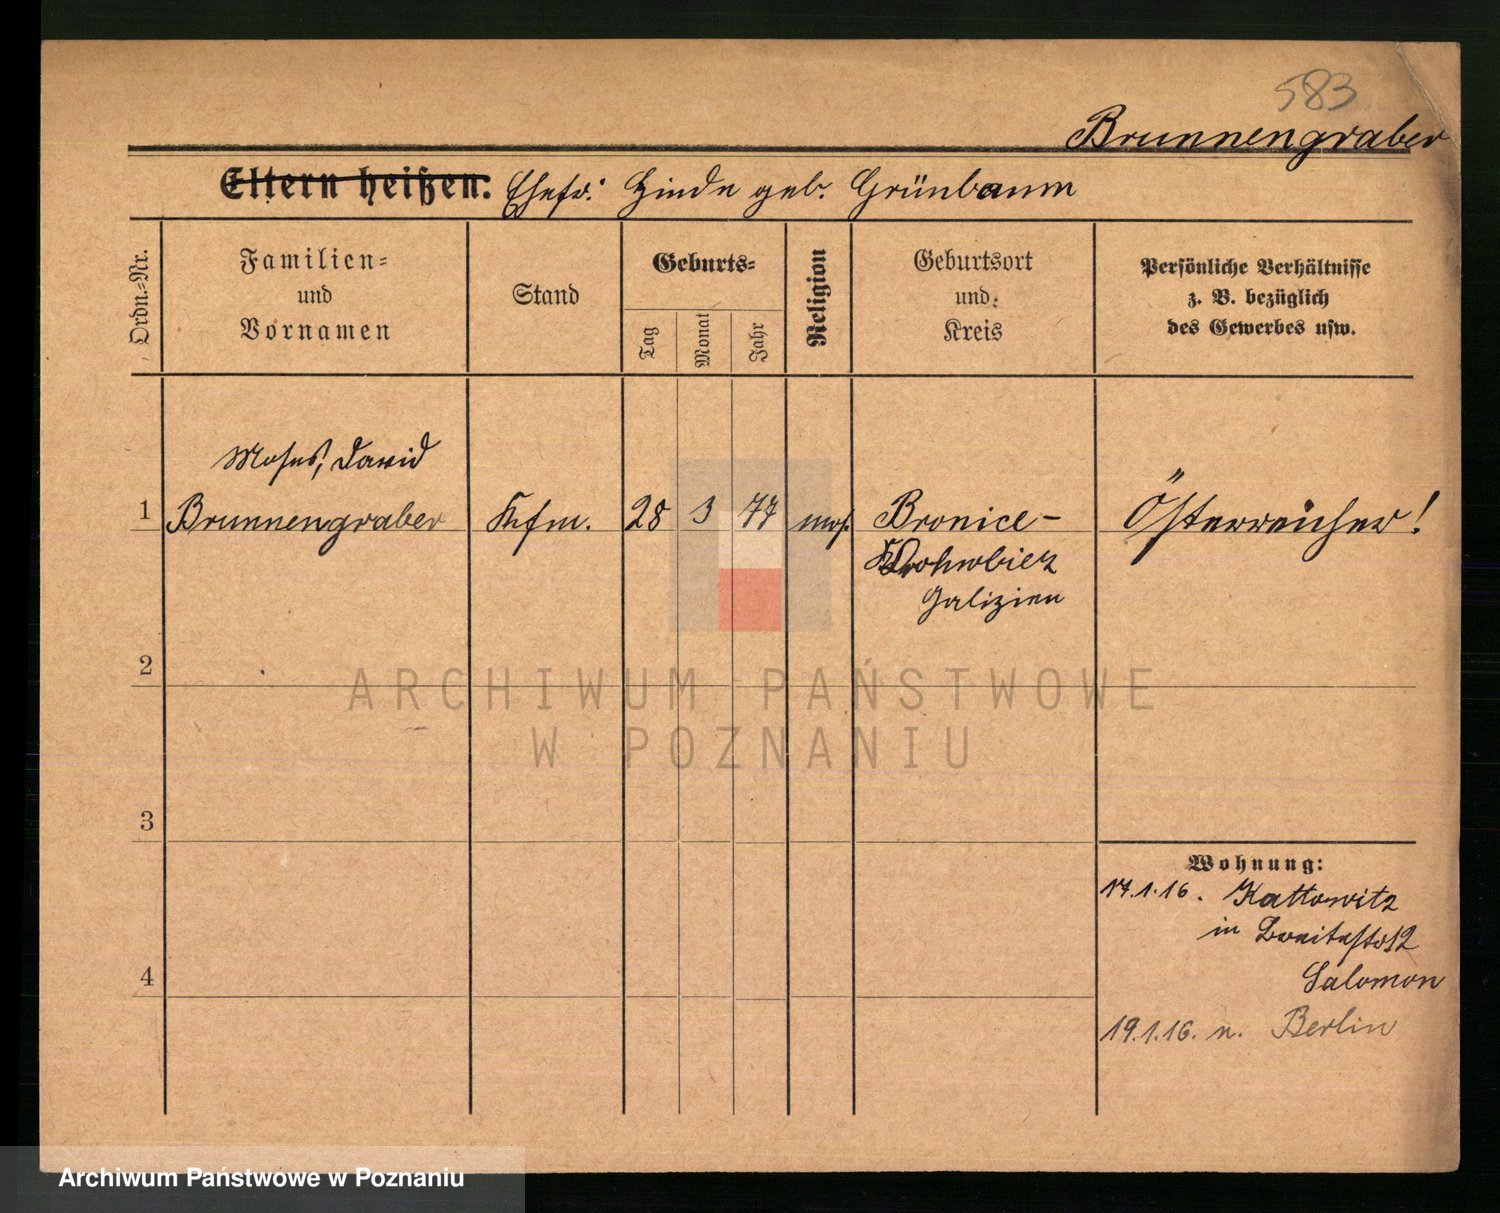 583
Brunnengraber
Eltern heißen: Ehefr: Hinde geb. Grünbaum
Ordn.-Nr.
Familien-
und
Vornamen
Stand
Geburts-
Tag
Monat
Jahr
Religion
Geburtsort
und
Kreis
Persönliche Verhältnisse
z. B. bezüglich
des Gewerbes usw.
Moses, David
1 Brunnengraber Kfm. 28 3 77 mos. Bronice- Österreicher!
Drohobicz
Galizien
2
ARCHIWUM PAŃSTWOWE
W POZNANIU
3
Wohnung:
17.1.16. Kattowitz
in Breitestr 12
Salomon
4
19.1.16. n. Berlin
Archiwum Państwowe w Poznaniu